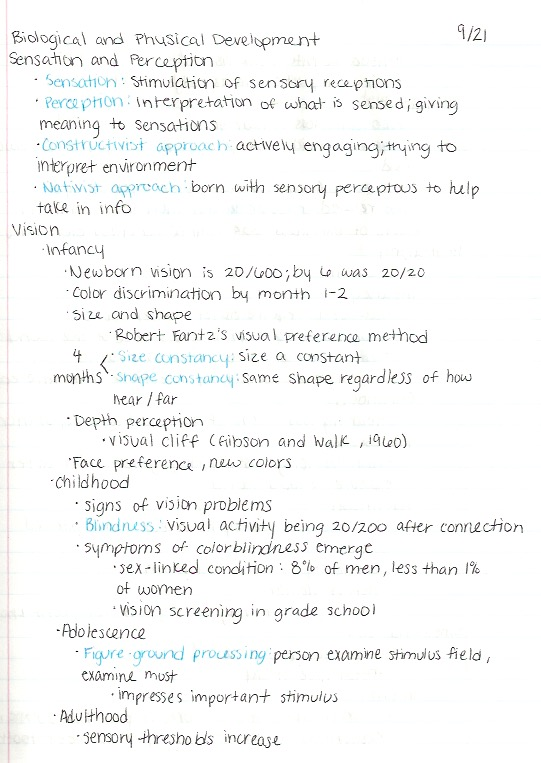 9/21
Biological and Physical Development
Sensation and Perception
· Sensation: stimulation of sensory receptions
· Perception: interpretation of what is sensed; giving
meaning to sensations
· Constructivist approach: actively engaging; trying to
interpret environment
· Nativist approach: born with sensory perceptous to help
take in info
Vision
· Infancy
· Newborn vision is 20/600; by 6 was 20/20
· Color discrimination by month 1-2
· Size and shape
· Robert Fantz's visual preference method
4 · Size constancy: size a constant
months · Shape constancy: same shape regardless of how
near/far
· Depth perception
· visual cliff (Gibson and Walk, 1960)
· Face preference, new colors
· Childhood
· signs of vision problems
· Blindness: visual activity being 20/200 after connection
· symptoms of colorblindness emerge
· sex-linked condition: 8% of men, less than 1%
of women
· vision screening in grade school
· Adolescence
· Figure-ground processing: person examine stimulus field,
examine must
· impresses important stimulus
· Adulthood
· sensory thresholds increase